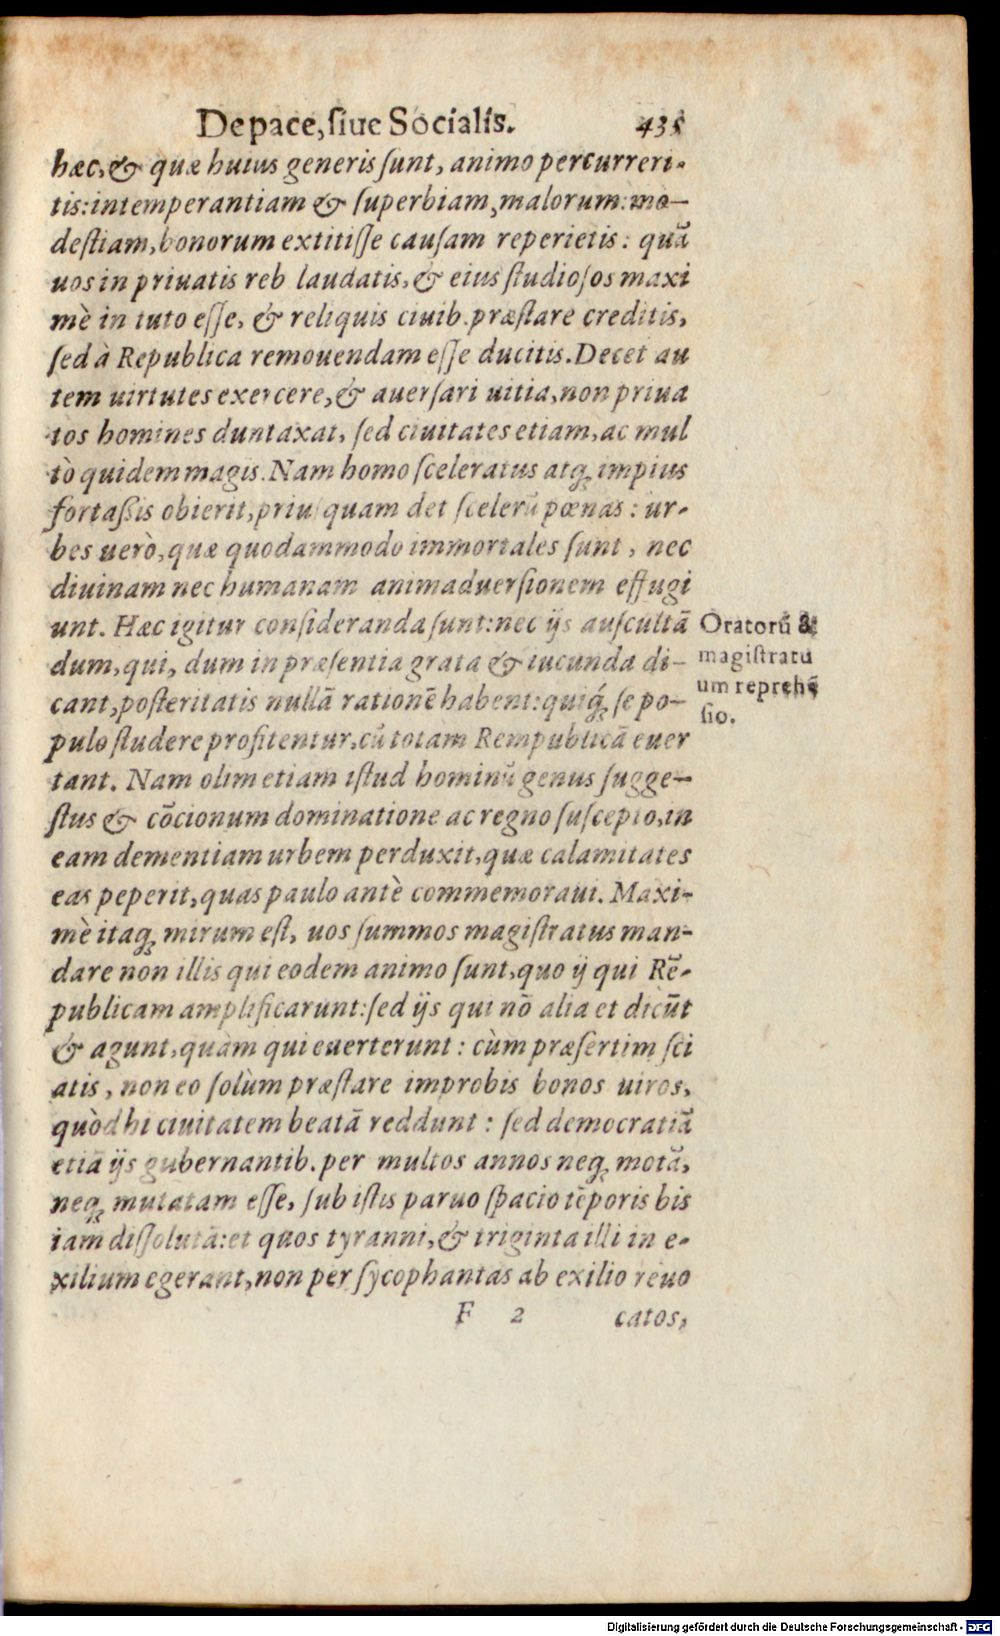 De pace, ſiue Socialis. 435
hæc, & quæ huius generis ſunt, animo percurreri-
tis: intemperantiam & ſuperbiam, malorum: mo-
deſtiam, bonorum extitiſſe cauſam reperietis: quā
uos in priuatis reb laudatis, & eius ſtudioſos maxi
mè in tuto eſſe, & reliquis ciuib. præſtare creditis,
ſed à Republica remouendam eſſe ducitis. Decet au
tem uirtutes exercere, & auerſari uitia, non priua
tos homines duntaxat, ſed ciuitates etiam, ac mul
tò quidem magis. Nam homo ſceleratus atq; impius
fortaßis obierit, priuſquam det ſcelerū pœnas: ur-
bes uerò, quæ quodammodo immortales ſunt, nec
diuinam nec humanam animaduerſionem effugi
unt. Hæc igitur conſideranda ſunt: nec ijs auſcultā
dum, qui, dum in præſentia grata & iucunda di-
cant, poſteritatis nullā rationē habent: quiq́; ſe po-
pulo ſtudere profitentur, cū totam Rempublicā euer
tant. Nam olim etiam iſtud hominū genus ſugge-
ſtus & cōcionum dominatione ac regno ſuſcepto, in
eam dementiam urbem perduxit, quæ calamitates
eas peperit, quas paulo antè commemoraui. Maxi-
mè itaq; mirum eſt, uos ſummos magiſtratus man-
dare non illis qui eodem animo ſunt, quo ij qui Rē-
publicam amplificarunt: ſed ijs qui nō alia et dicūt
& agunt, quàm qui euerterunt: cùm præſertim ſci
atis, non eo ſolùm præſtare improbis bonos uiros,
quòd hi ciuitatem beatā reddunt: ſed democratiā
etiā ijs gubernantib. per multos annos neq; motā,
neq; mutatam eſſe, ſub iſtis paruo ſpacio tēporis bis
iam diſſolutā: et quos tyranni, & triginta illi in e-
xilium egerant, non per ſycophantas ab exilio reuo
F 2 catos,
Oratorū &
magiſtratu
um reprehē
ſio.
Digitalisierung gefördert durch die Deutsche Forschungsgemeinschaft - DFG